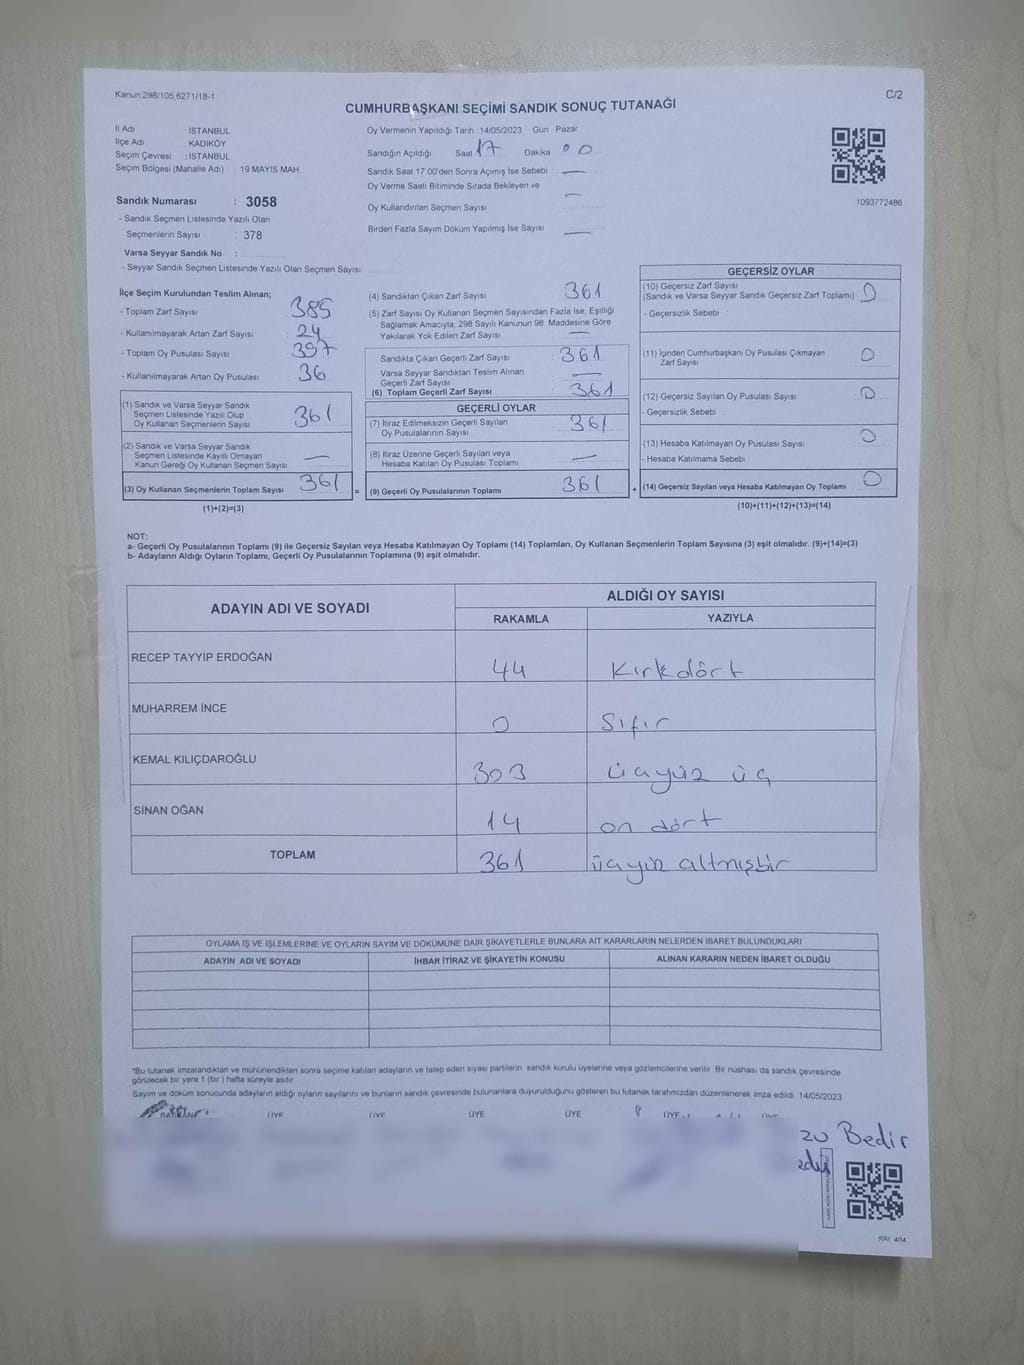 Kanun:298/105,6271/18-1
C/2
CUMHURBAŞKANI SEÇİMİ SANDIK SONUÇ TUTANAĞI
İl Adı İSTANBUL
İlçe Adı KADIKÖY
Seçim Çevresi : İSTANBUL
Seçim Bölgesi (Mahalle Adı) 19 MAYIS MAH.
Sandık Numarası : 3058
- Sandık Seçmen Listesinde Yazılı Olan
Seçmenlerin Sayısı : 378
Varsa Seyyar Sandık No :
- Seyyar Sandık Seçmen Listesinde Yazılı Olan Seçmen Sayısı
Oy Vermenin Yapıldığı Tarih : 14/05/2023 Gün : Pazar
Sandığın Açıldığı Saat 17 Dakika 00
Sandık Saat 17.00'den Sonra Açımış İse Sebebi —
Oy Verme Saati Bitiminde Sırada Bekleyen ve
Oy Kullandırılan Seçmen Sayısı —
Birden Fazla Sayım Döküm Yapılmış İse Sayısı —
1093772486
İlçe Seçim Kurulundan Teslim Alınan;
- Toplam Zarf Sayısı 385
- Kullanılmayarak Artan Zarf Sayısı 24
- Toplam Oy Pusulası Sayısı 397
- Kullanılmayarak Artan Oy Pusulası 36
(1) Sandık ve Varsa Seyyar Sandık
Seçmen Listesinde Yazılı Olup
Oy Kullanan Seçmenlerin Sayısı 361
(2) Sandık ve Varsa Seyyar Sandık
Seçmen Listesinde Kayıtlı Olmayan
Kanun Gereği Oy Kullanan Seçmen Sayısı —
(3) Oy Kullanan Seçmenlerin Toplam Sayısı 361
(1)+(2)=(3)
(4) Sandıktan Çıkan Zarf Sayısı 361
(5) Zarf Sayısı Oy Kullanan Seçmen Sayısından Fazla İse, Eşitliği
Sağlamak Amacıyla, 298 Sayılı Kanunun 98. Maddesine Göre
Yakılarak Yok Edilen Zarf Sayısı —
Sandıkta Çıkan Geçerli Zarf Sayısı 361
Varsa Seyyar Sandıktan Teslim Alınan
Geçerli Zarf Sayısı —
(6) Toplam Geçerli Zarf Sayısı 361
GEÇERLİ OYLAR
(7) İtiraz Edilmeksizin Geçerli Sayılan
Oy Pusulalarının Sayısı 361
(8) İtiraz Üzerine Geçerli Sayılan veya
Hesaba Katılan Oy Pusulası Toplamı —
= (9) Geçerli Oy Pusulalarının Toplamı 361
GEÇERSİZ OYLAR
(10) Geçersiz Zarf Sayısı
(Sandık ve Varsa Seyyar Sandık Geçersiz Zarf Toplamı) 0
- Geçersizlik Sebebi :
(11) İçinden Cumhurbaşkanı Oy Pusulası Çıkmayan
Zarf Sayısı 0
(12) Geçersiz Sayılan Oy Pusulası Sayısı 0
- Geçersizlik Sebebi :
(13) Hesaba Katılmayan Oy Pusulası Sayısı 0
- Hesaba Katılmama Sebebi :
+ (14) Geçersiz Sayılan veya Hesaba Katılmayan Oy Toplamı 0
(10)+(11)+(12)+(13)=(14)
NOT:
a- Geçerli Oy Pusulalarının Toplamı (9) ile Geçersiz Sayılan veya Hesaba Katılmayan Oy Toplamı (14) Toplamları, Oy Kullanan Seçmenlerin Toplam Sayısına (3) eşit olmalıdır. (9)+(14)=(3)
b- Adayların Aldığı Oyların Toplamı, Geçerli Oy Pusulalarının Toplamına (9) eşit olmalıdır.
ADAYIN ADI VE SOYADI
ALDIĞI OY SAYISI
RAKAMLA YAZIYLA
RECEP TAYYİP ERDOĞAN 44 Kırkdört
MUHARREM İNCE 0 Sıfır
KEMAL KILIÇDAROĞLU 303 üçyüz üç
SİNAN OĞAN 14 on dört
TOPLAM 361 üçyüz altmışbir
OYLAMA İŞ VE İŞLEMLERİNE VE OYLARIN SAYIM VE DÖKÜMÜNE DAİR ŞİKAYETLERLE BUNLARA AİT KARARLARIN NELERDEN İBARET BULUNDUKLARI
ADAYIN ADI VE SOYADI İHBAR İTİRAZ VE ŞİKAYETİN KONUSU ALINAN KARARIN NEDEN İBARET OLDUĞU
*Bu tutanak imzalandıktan ve mühürlendikten sonra seçime katılan adayların ve talep eden siyasi partilerin sandık kurulu üyelerine veya gözlemcilerine verilir. Bir nüshası da sandık çevresinde
görülecek bir yere 1 (bir ) hafta süreyle asılır.
Sayım ve döküm sonucunda adayların aldığı oyların sayılarını ve bunların sandık çevresinde bulunanlara duyurulduğunu gösteren bu tutanak tarafımızdan düzenlenerek imza edildi. 14/05/2023
BAŞKAN ÜYE ÜYE ÜYE ÜYE ÜYE ÜYE
zu Bedir